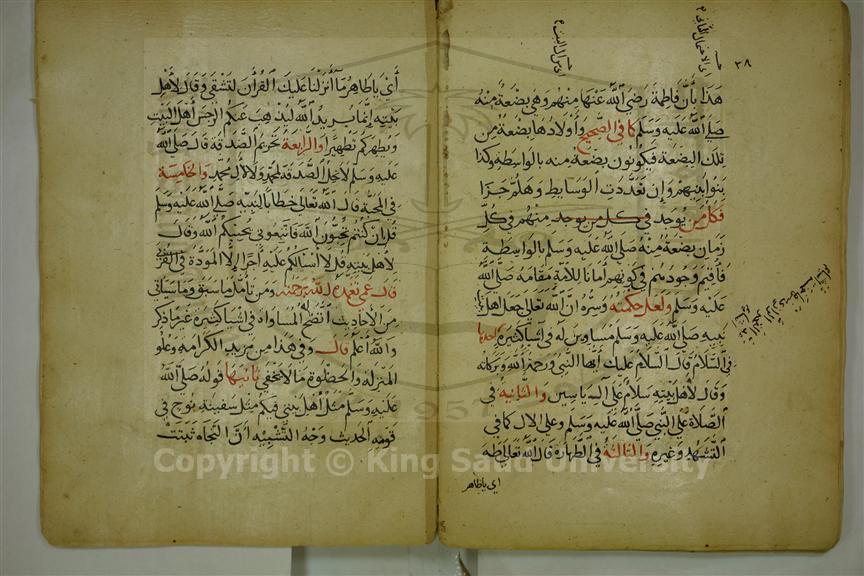 ٣٨
هذا بأن فاطمة رضي الله عنها منهم وهي بضعة منه
صلى الله عليه وسلم كما في الصحيح وأولادها بضعة من
تلك البضعة فيكونون بضعة منه بالواسطة وكذا
بنوا بنيهم وإن تعددت الوسايط وهلم جرا
فكل من يوجد منهم في كل
زمان بضعة منه صلى الله عليه وسلم بالواسطة
فأقيم وجودهم في كونهم أمانا للأمة مقامه صلى الله
عليه وسلم ولعل حكمته وسره ان الله تعالى جعل اهل بيت
نبيه صلى الله عليه وسلم مساوين له في اشياء كثيرة احدها
في السلام قال السلام عليك أيها النبي ورحمة الله وبركاته
وقال لأهل بيته سلام على ال ياسين والثانية في
الصلاة على النبي صلى الله عليه وسلم وعلى الال كما في
التشهد وغيره والثالثة في الطهارة قال الله تعالى طه
اي ياطاهر
أي ياطاهر ما أنزلنا عليك القرأن لتشقى وقال لأهل
بيته إنما يريد الله ليذهب عنكم الرجس أهل البيت
ويطهركم تطهيرا والرابعة تحريم الصدقة قال صلى الله
عليه وسلم لا تحل الصدقة لمحمد ولا لال محمد والخامسة
في المحبة قال الله تعالى خطابا لنبيه صلى الله عليه وسلم
قل ان كنتم تحبون الله فاتبعوني يحببكم الله وقال
لاهل بيته قل لا اسالكم عليه اجرا إلا المودة في القربى
قال عمي تغمده الله برحمته ومن تأمل ما سبق وما سيأتي
من الأحاديث اتضح له المساواة في اشياء كثيرة غير ما ذكر
والله أعلم قال وفي هذا من مزيد الكرامة وعلو
المنزلة والحظوة ما لا يخفى ثانيها قوله صلى الله
عليه وسلم مثل أهل بيتي فيكم مثل سفينة نوح في
قومه الحديث وجه التشبيه أن النجاة ثبتت
Copyright © King Saud University
1957